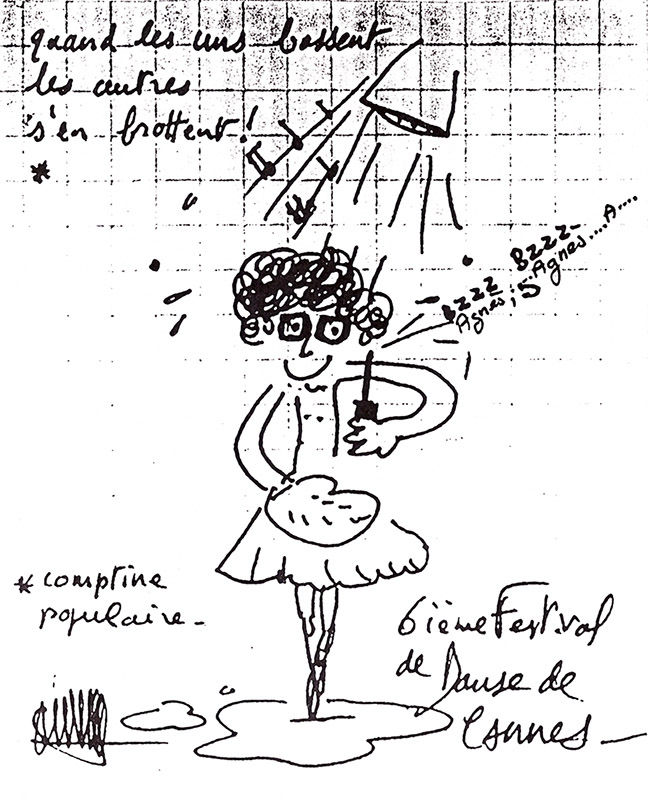 quand les uns bossent
les autres
s'en frottent!
*
BZZZ BZZZ-
Agnes; 5 Agnes....A....
* comptine
populaire-
6ième Festival
de Danse de
Cannes-